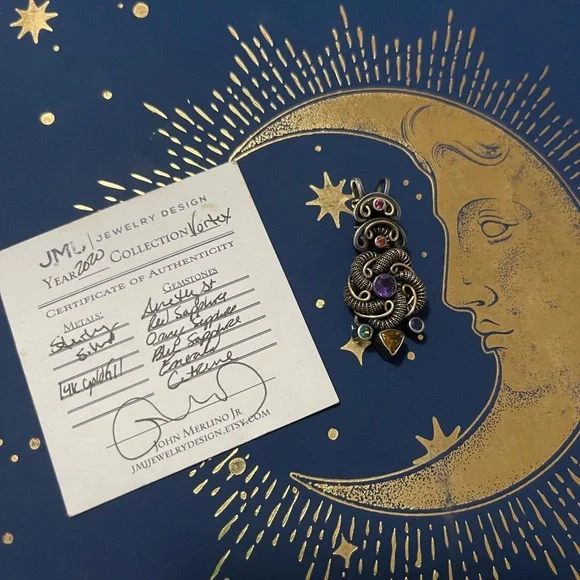 JMJ | JEWELRY DESIGN
YEAR 2020 COLLECTION Vortex
CERTIFICATE OF AUTHENTICITY
METALS:
Sterling
Silver
14K Gold fill
GEMSTONES
Amethyst
Red Sapphire
Orange Sapphire
Blue Sapphire
Emerald
Citrine
JOHN MERLINO JR
JMJJEWELRYDESIGN.ETSY.COM